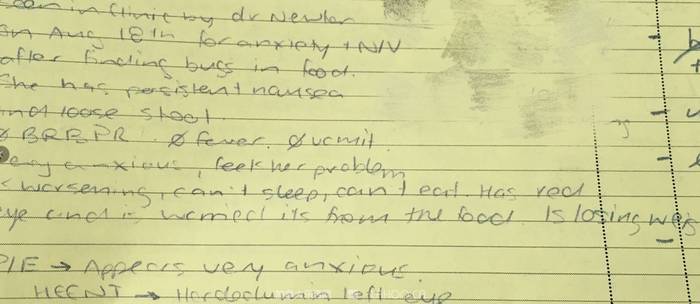 Seen in clinic by dr Newlar
on Aug 18th for anxiety + N/V
after finding bugs in food.
She has persistent nausea
and loose stool.
Ø BRBPR. Ø fever. Ø vomit.
Very anxious, feels her problem
is worsening, can't sleep, can't eat. Has red
eye and is worried its from the food. Is losing
P/E → Appears very anxious
HEENT → Hordeolum in left eye